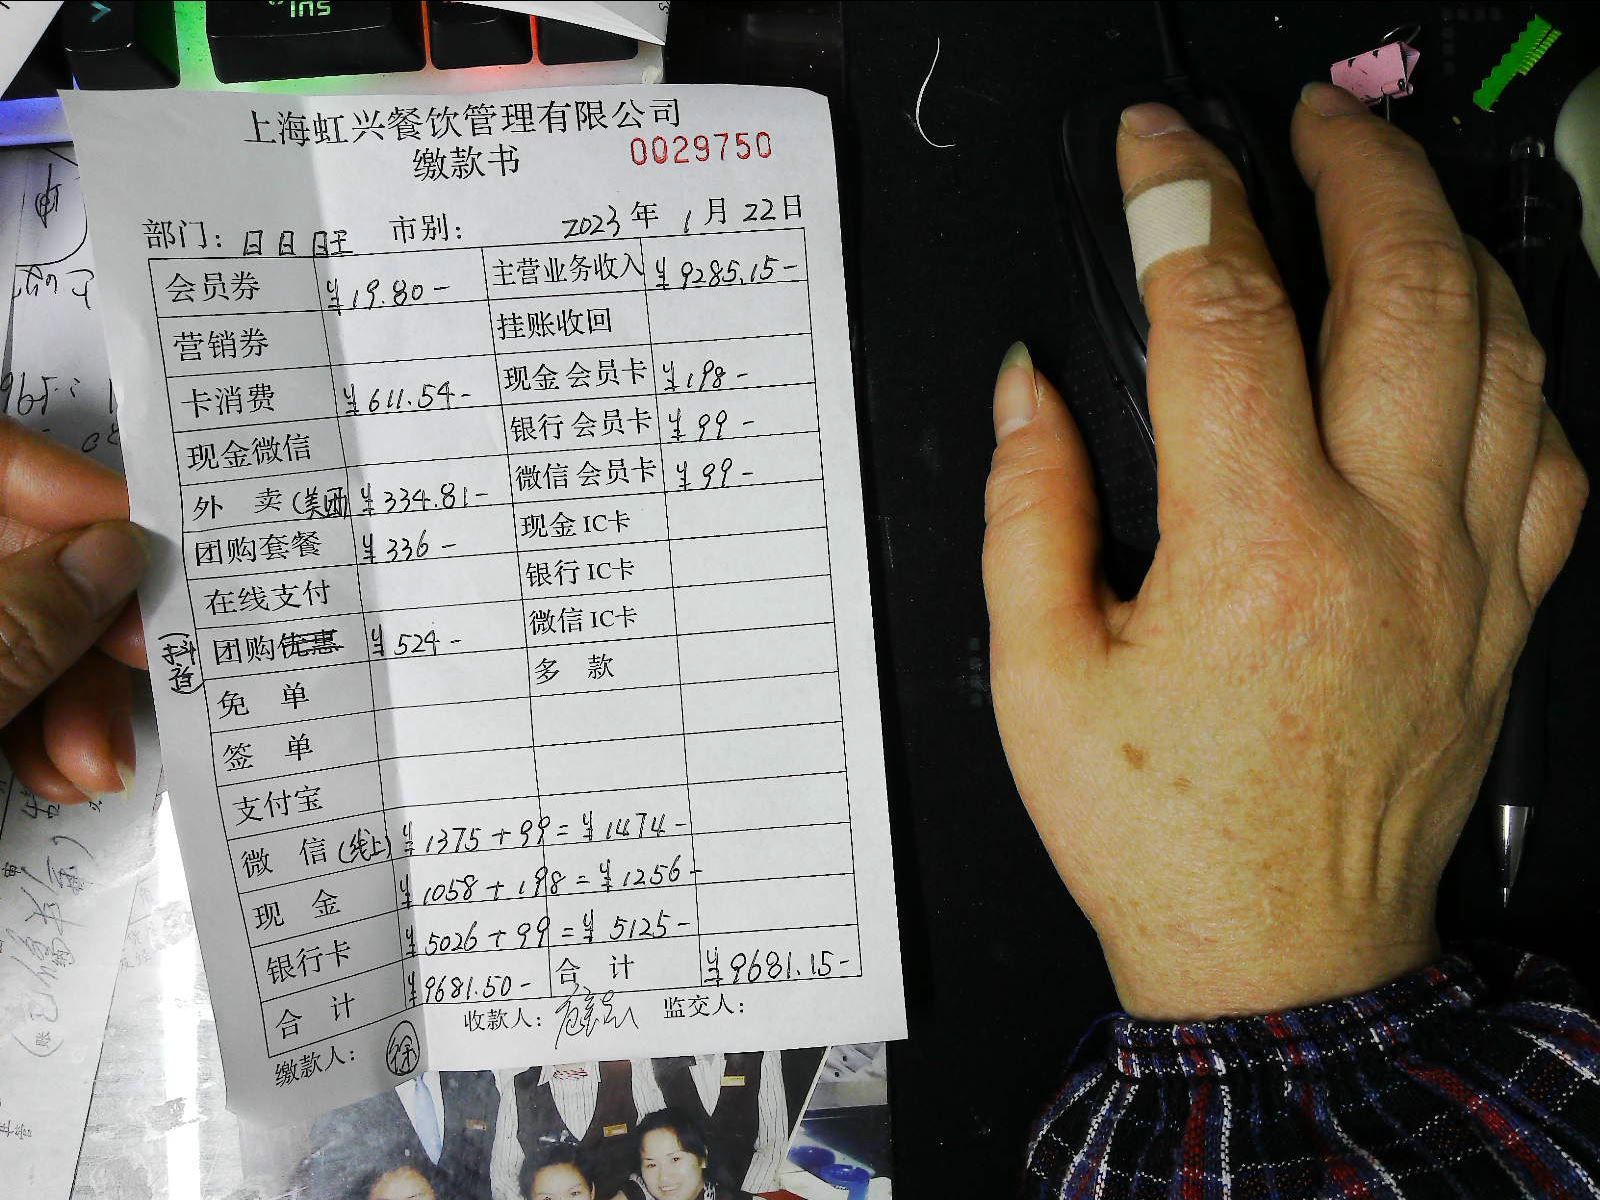 上海虹兴餐饮管理有限公司
缴款书 0029750
部门: 日日旺 市别: 2023年 1月 22日
会员券 ¥19.80- 主营业务收入 ¥9285.15-
营销券 挂账收回
卡消费 ¥611.54- 现金会员卡 ¥198-
现金微信 银行会员卡 ¥99-
外 卖(美团) ¥334.81- 微信会员卡 ¥99-
团购套餐 ¥336- 现金IC卡
在线支付 银行IC卡
(抖音) 团购优惠 ¥524- 微信IC卡
免 单 多 款
签 单
支付宝
微 信(线上) ¥1375+99=¥1474-
现 金 ¥1058+198=¥1256-
银行卡 ¥5026+99=¥5125-
合 计 ¥9681.50- 合 计 ¥9681.15-
缴款人: 徐 收款人: 监交人: